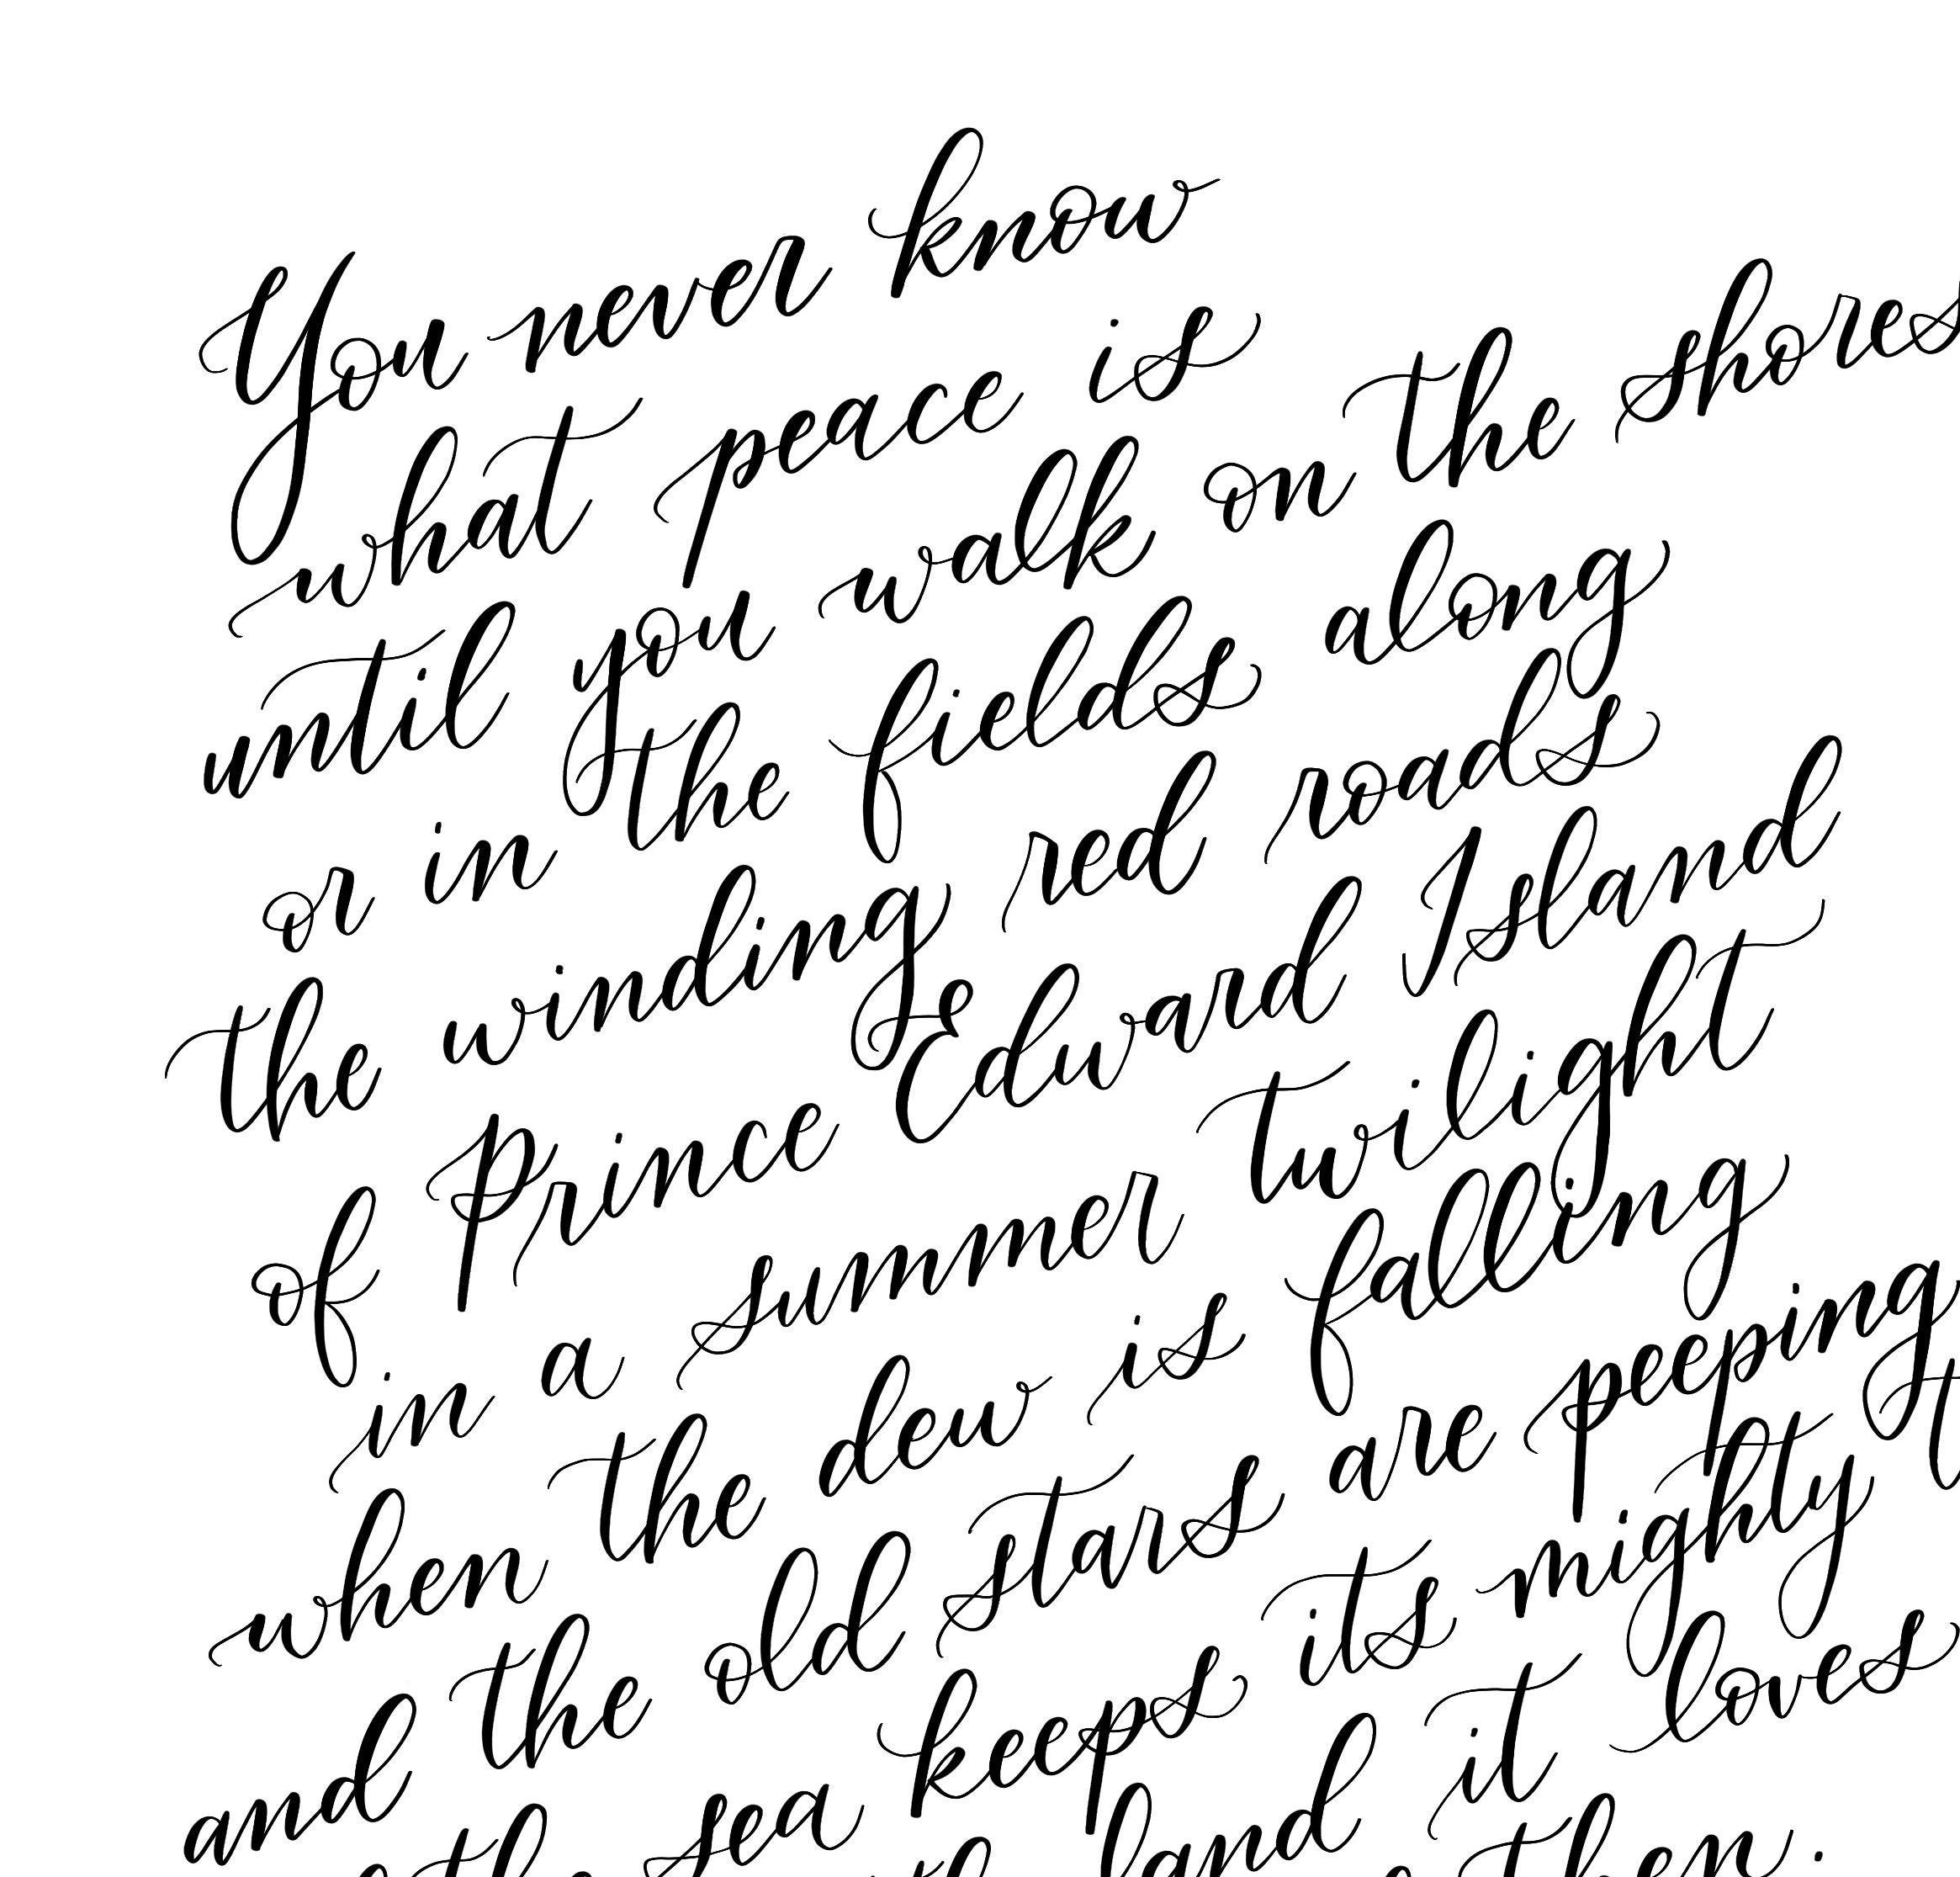 You never know
what peace is
until you walk on the shores
or in the fields along
the winding red roads
of Prince Edward Island
in a summer twilight
when the dew is falling
and the old stars are peeping
the sea keeps its mighty
land it loves
then.